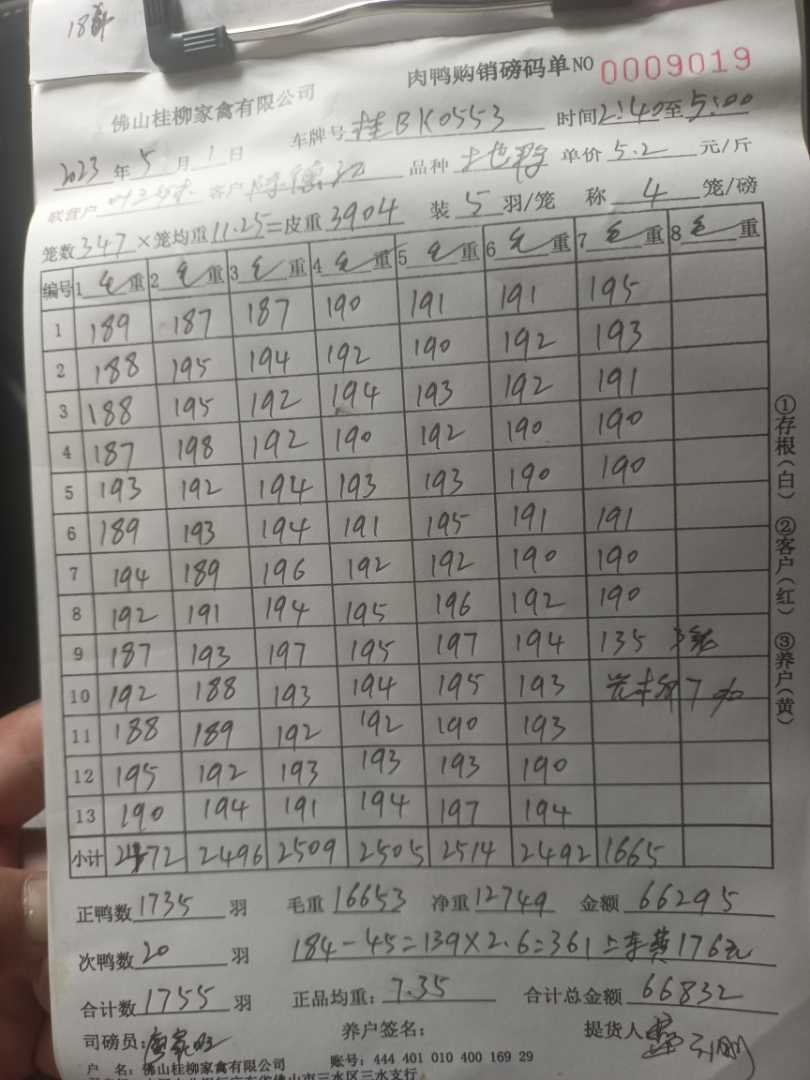 18
肉鸭购销磅码单 NO 0009019
佛山桂柳家禽有限公司
车牌号 桂BK0553 时间 2:40 至 5:00
2023 年 5 月 1 日
联营户 客户 陈德江 品种 土色鸭 单价 5.2 元/斤
笼数 347 ×笼均重 11.25 =皮重 3904 装 5 羽/笼 称 4 笼/磅
编号 1 毛重 2 毛重 3 毛重 4 毛重 5 毛重 6 毛重 7 毛重 8 毛重
1 189 187 187 190 191 191 195
2 188 195 194 192 190 192 193
3 188 195 192 194 193 192 191
4 187 198 192 190 192 190 190
5 193 192 194 193 193 190 190
6 189 193 194 191 195 191 191
7 194 189 196 192 192 190 190
8 192 191 194 195 196 192 190
9 187 193 197 195 197 194 135 3笼
10 192 188 193 194 195 193 7%
11 188 189 192 192 190 193
12 195 192 193 193 193 190
13 190 194 191 194 197 194
小计 2472 2496 2509 2505 2514 2492 1665
正鸭数 1735 羽 毛重 16653 净重 12749 金额 66295
次鸭数 20 羽 184-45=139×2.6=361 上车费176元
合计数 1755 羽 正品均重: 7.35 合计总金额 66832
司磅员: 养户签名: 提货人
户 名: 佛山桂柳家禽有限公司 账号: 444 401 010 400 169 29
佛山市三水区三水支行
①存根(白) ②客户(红) ③养户(黄)